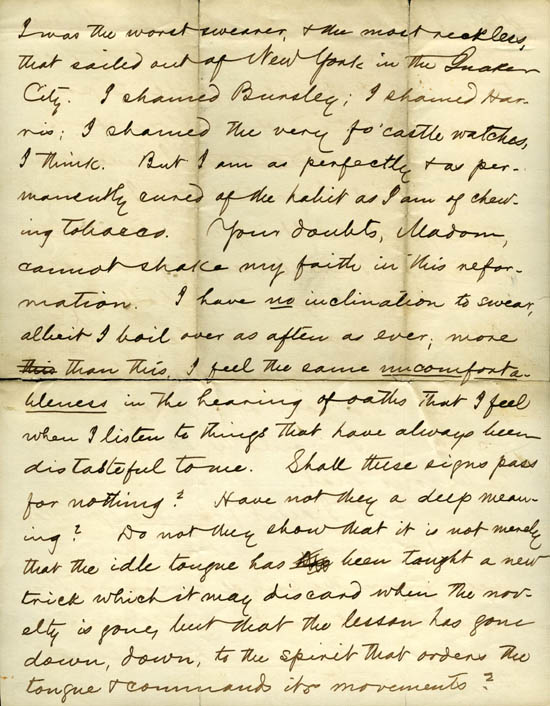 I was the worst swearer, & the most reckless,
that sailed out of New York in the Quaker
City. I shamed Bursley; I shamed Har-
ris; I shamed the very fo'castle watches,
I think. But I am as perfectly & as per-
manently cured of the habit as I am of chew-
ing tobacco. Your doubts, Madam,
cannot shake my faith in this refor-
mation. I have no inclination to swear,
albeit I boil over as often as ever; more
this than this, I feel the same uncomforta-
bleness in the hearing of oaths that I feel
when I listen to things that have always been
distasteful to me. Shall these signs pass
for nothing? Have not they a deep mean-
ing? Do not they show that it is not merely
that the idle tongue has been taught a new
trick which it may discard when the nov-
elty is gone, but that the lesson has gone
down, down, to the spirit that orders the
tongue & commands its movements?